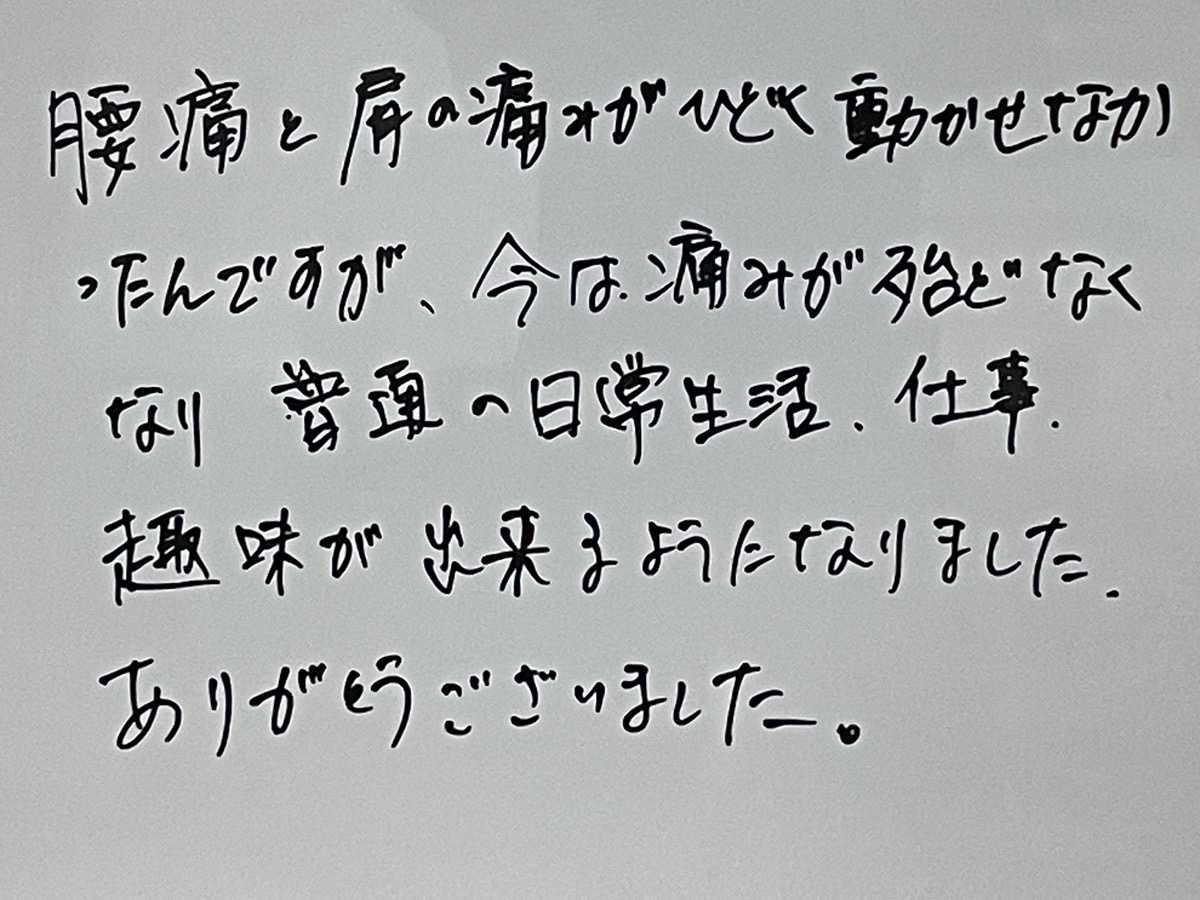 腰痛と肩の痛みがひどく動かせなか
ったんですが、今は痛みが殆どなく
なり 普通の日常生活、仕事、
趣味が出来るようになりました。
ありがとうございました。